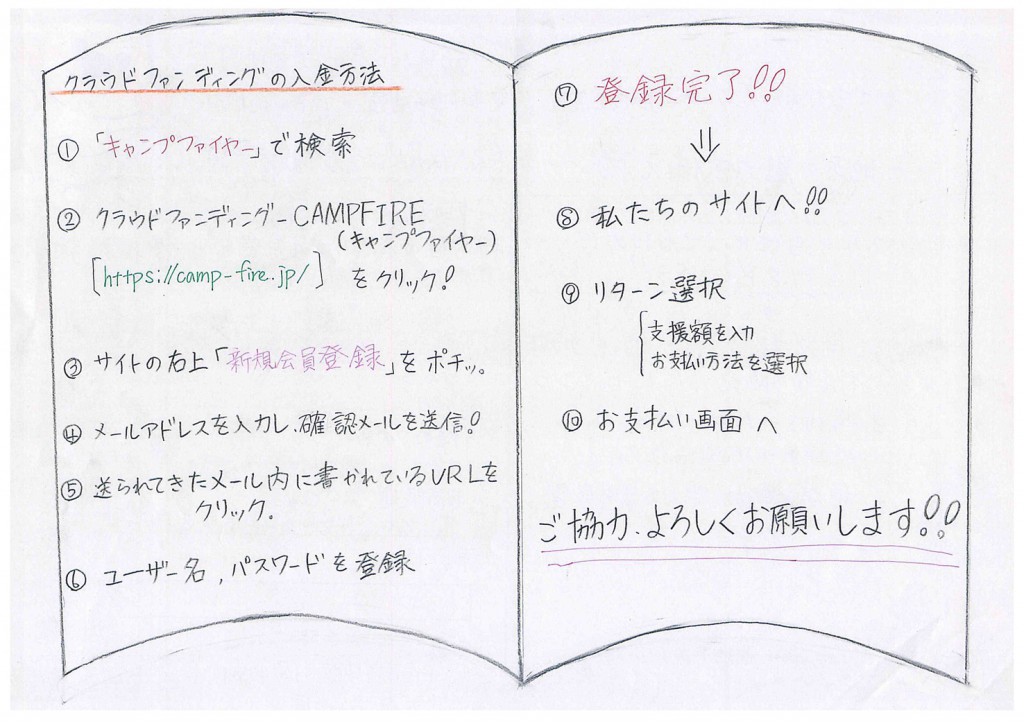 クラウドファンディングの入金方法
① 「キャンプファイヤー」で検索
② クラウドファンディング-CAMPFIRE
(キャンプファイヤー)
[https://camp-fire.jp/] をクリック!
③ サイトの右上「新規会員登録」をポチッ。
④ メールアドレスを入力し、確認メールを送信!
⑤ 送られてきたメール内に書かれているURLを
クリック。
⑥ ユーザー名, パスワードを登録
⑦ 登録完了!!
⇓
⑧ 私たちのサイトへ!!
⑨ リターン選択
支援額を入力
お支払い方法を選択
⑩ お支払い画面へ
ご協力、よろしくお願いします!!